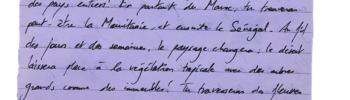 des pays entiers. En partant du Maroc, tu traverseras
peut-être la Mauritanie et ensuite le Sénégal. Au fil
des jours et des semaines, le paysage changera ; le désert
laissera place à la végétation tropicale avec des arbres
grands comme des immeubles ! Tu traverseras des fleuves